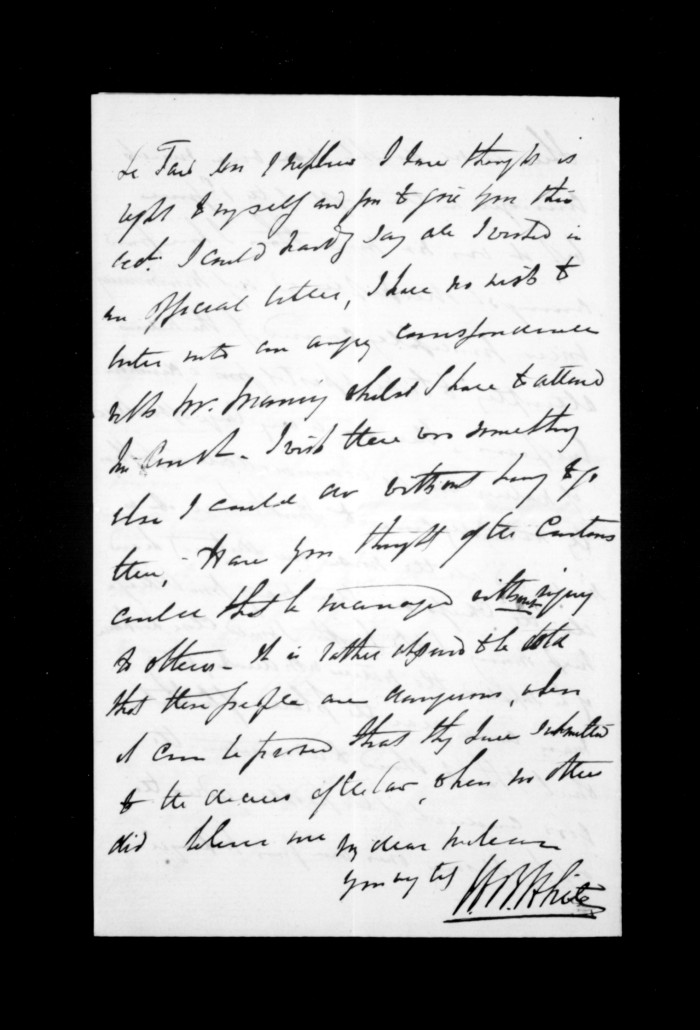 be Fair
I have thought is
right to myself and you to give you this
I could hardly say all I wished in
an official letter, I have no wish to
enter into an angry correspondence
with Mr. Manning whilst I have to attend
his Court - I wish there was something
else I could do without having to go
there, - Have you thought of the Customs
could that be managed without injury
to others - It is rather absurd to be told
that these people are dangerous, when
it can be proved that they have submitted
to the decrees of the law, when no other
did believe me my dear McLean
W. B. White